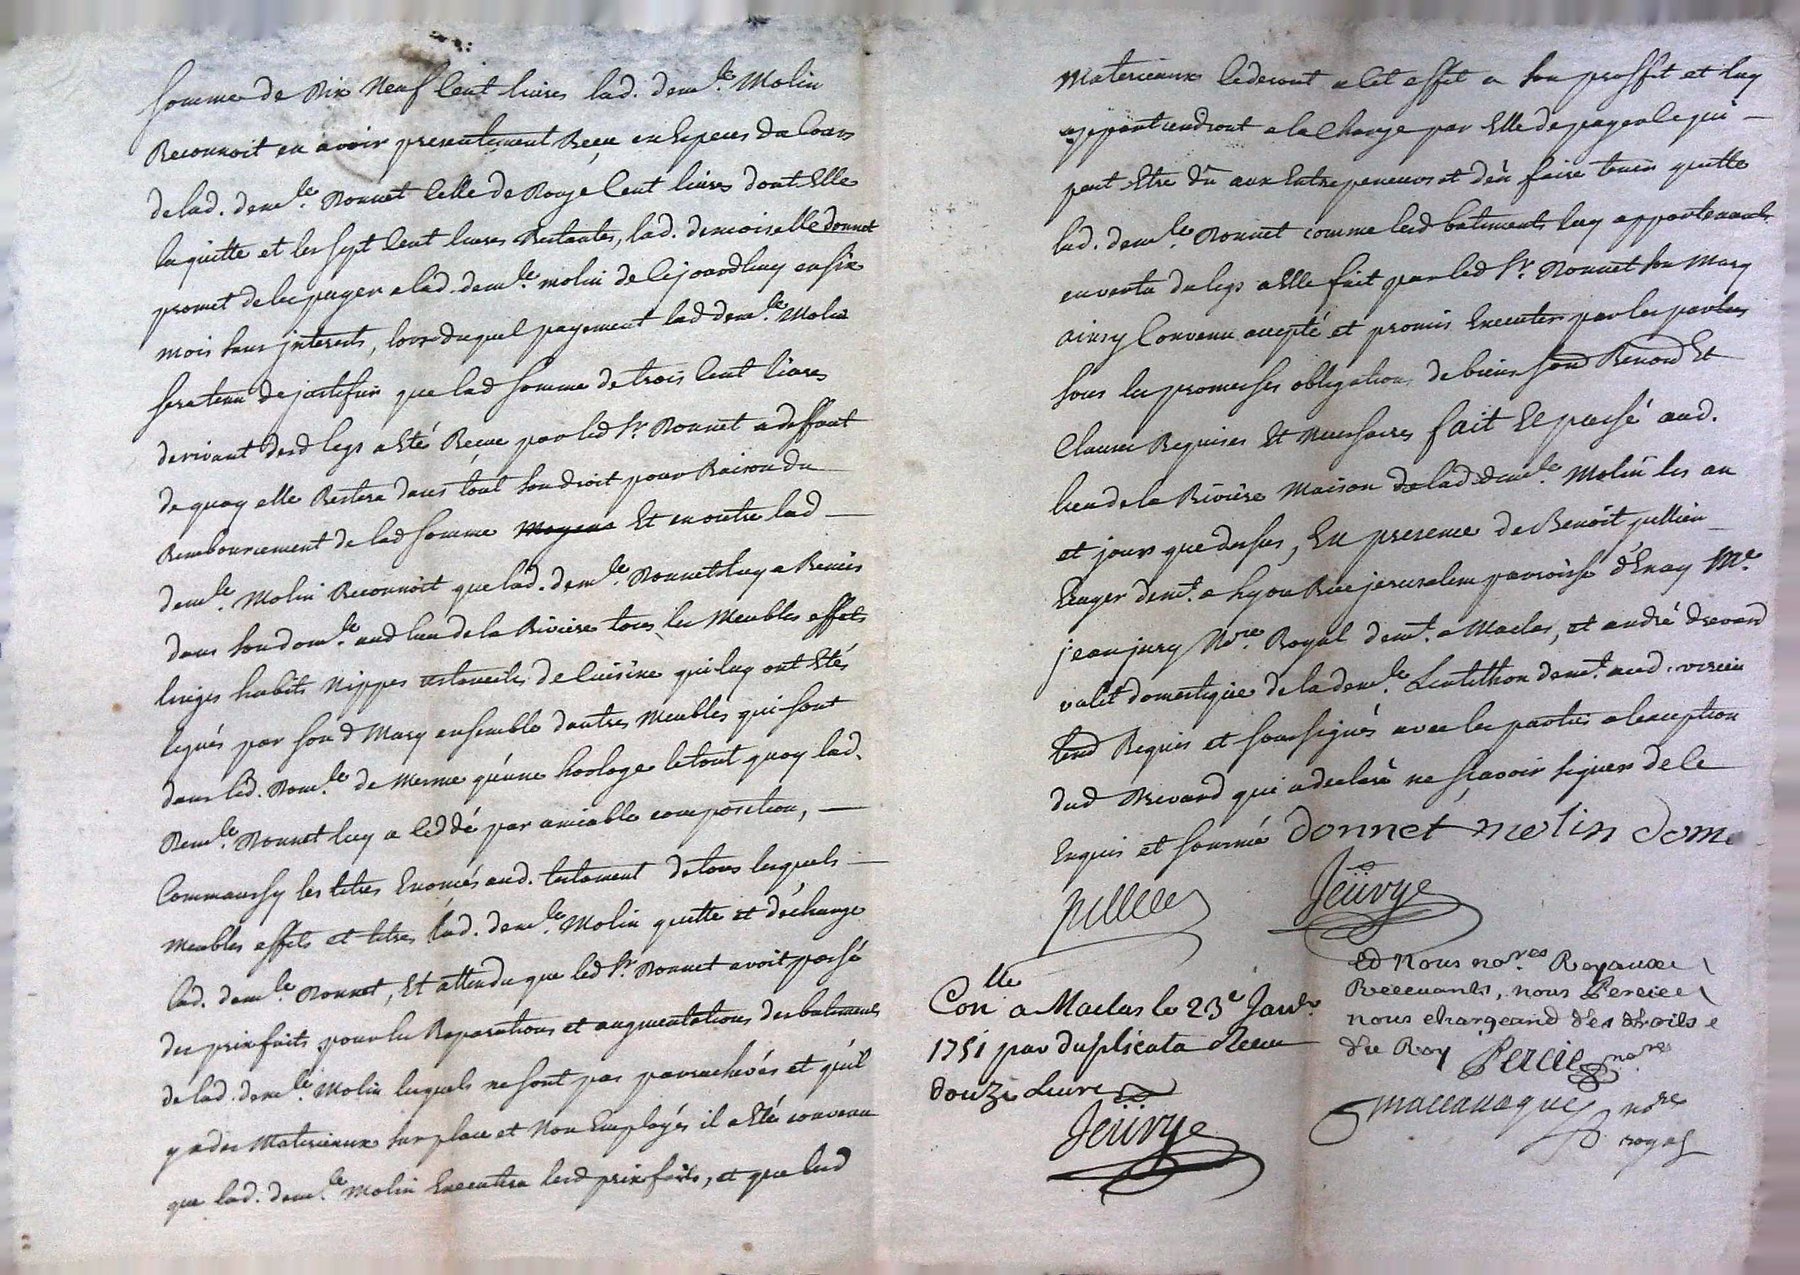 somme de Dix Neuf Cent livres lad. dem.lle Molin
Reconnoit en avoir presentement Reçu en Especes du Cours
de lad. dem.lle Donnet Celle de Douze Cent livres dont Elle
la quitte et les sept Cent livres Restantes, lad. demoiselle donnet
promet de les payer a lad. dem.lle molin de cejourdhuy en six
mois sans jnterests, lors duquel payement lad dem.lle Molin
sera tenu de justifier que lad somme de trois Cent livres
derivant desd legs a Eté Reçue par led Sr. Donnet a deffaut
de quoy elle Restera dans tout son droit pour Raison du
Remboursement de lad somme moyens Et en outre lad
dem.lle Molin Reconnoit que lad. dem.lle Donnet luy a Remis
dans son dom.le aud lieu de la Riviere tous les Meubles effets
linges habits Nippes ustanciles de Cuisine qui luy ont Etés
legués par sond Mary ensemble dautres Meubles qui sont
dans led. Dom.le de meme qu'une horloge le tout quoy lad.
Dem.lle Donnet luy a Ceddé par amiable composition,
Comme aussy les titres Enoncés aud. testament de tous lesquels
meubles effets et titres lad. dem.lle Molin quitte et décharge
lad. dem.lle Donnet, Et attendu que led Sr. Donnet avoit passé
des prix faits pour les Reparations et augmentations des batiments
de lad. dem.lle Molin lesquels ne sont pas parachevés et qu'il
y a des Materieaux sur place et Non Employés il a Eté convenu
que lad. dem.lle Molin Executera lesd prix faits, et que lesd
Materieaux cederont a Cet effet a son proffit et luy
appartiendront a la Charge par Elle de payer ce qui
peut Etre dû aux Entrepreneurs et d'en faire tenir quitte
lad. dem.lle Donnet comme lesd batiments luy appartenants
en vertu du legs a Elle fait par led Sr. Donnet son Mary
ainsy Convenu accepté et promis Executer par les parties
sous les promesses obligations de biens Renond Et
Clauses Requises Et necessaires fait Et passé aud.
lieu de la Riviere Maison de lad dem.lle Molin les an
et jour que dessus, En presence de Benoit jullien
demt. a Lyon Rue jerusalem parroisse d'Enay Me
jean jury Nore Royal demt. a Maclas, et andré drevard
valet domestique de la dem.lle demt. aud.
Requis et soussignés avec les parties a lexception
dud Drevard qui a declaré ne sçavoir signer de ce
Enquis et sommé donnet molin
jullien Jeüvye
Et Nous nores Royaux
Recevants, nous Percie
nous chargeand des droits
du Roy Percie nore
Conlle a Maclas le 23e Janvr
1751 par duplicata Receu
douze Livre
Jeüvye
nore
royal